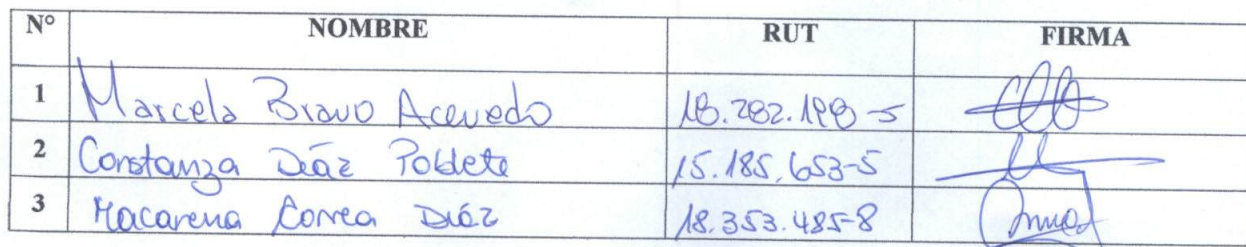 N° NOMBRE RUT FIRMA
1 Marcela Bravo Acevedo 18.282.198-5
2 Constanza Díaz Poblete 15.185.653-5
3 Macarena Correa Díaz 18.353.485-8